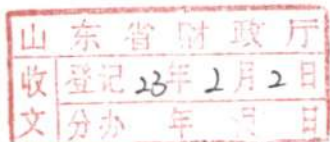 山东省财政厅
收文
登记 23年2月2日
分办 年 月 日